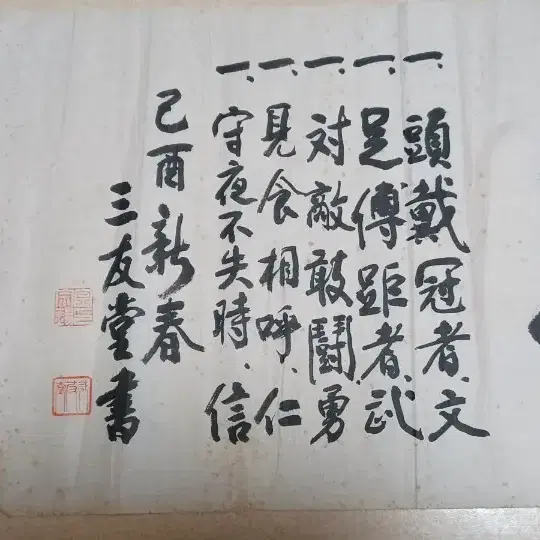 一、頭戴冠者、文
一、足傅距者、武
一、対敵敢鬪、勇
一、見食相呼、仁
一、守夜不失時、信
己酉新春
三友堂書